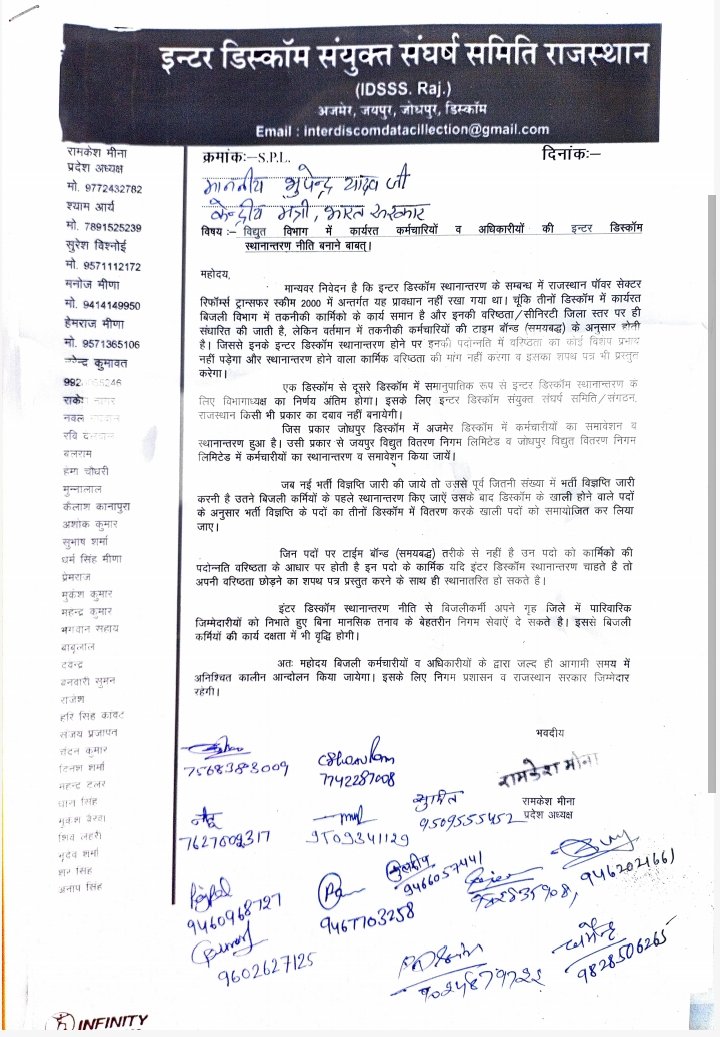 इन्टर डिस्कॉम संयुक्त संघर्ष समिति राजस्थान
(IDSSS. Raj.)
अजमेर, जयपुर, जोधपुर, डिस्कॉम
Email : interdiscomdatacillection@gmail.com
क्रमांकः–S.P.L.
दिनांकः–
माननीय भुपेन्द्र यादव जी
केन्द्रीय मंत्री, भारत सरकार
विषय :– विद्युत विभाग में कार्यरत कर्मचारियों व अधिकारीयों की इन्टर डिस्कॉम
स्थानान्तरण नीति बनाने बाबत्।
महोदय,
मान्यवर निवेदन है कि इन्टर डिस्कॉम स्थानान्तरण के सम्बन्ध में राजस्थान पॉवर सेक्टर
रिफॉर्म्स ट्रान्सफर स्कीम 2000 में अन्तर्गत यह प्रावधान नहीं रखा गया था। चूंकि तीनों डिस्कॉम में कार्यरत
बिजली विभाग में तकनीकी कार्मिको के कार्य समान है और इनकी वरिष्ठता/सीनिरटी जिला स्तर पर ही
संधारित की जाती है, लेकिन वर्तमान में तकनीकी कर्मचारियों की टाइम बॉन्ड (समयबद्ध) के अनुसार होती
है। जिससे इनके इन्टर डिस्कॉम स्थानान्तरण होने पर इनकी पदोन्नति में वरिष्ठता का कोई विशेष प्रभाव
नहीं पड़ेगा और स्थानान्तरण होने वाला कार्मिक वरिष्ठता की मांग नहीं करेगा व इसका शपथ पत्र भी प्रस्तुत
करेगा।
एक डिस्कॉम से दूसरे डिस्कॉम में समानुपातिक रूप से इन्टर डिस्कॉम स्थानान्तरण के
लिए विभागाध्यक्ष का निर्णय अंतिम होगा। इसके लिए इन्टर डिस्कॉम संयुक्त संघर्ष समिति/संगठन,
राजस्थान किसी भी प्रकार का दबाव नहीं बनायेगी।
जिस प्रकार जोधपुर डिस्कॉम में अजमेर डिस्कॉम में कर्मचारियों का समावेशन व
स्थानान्तरण हुआ है। उसी प्रकार से जयपुर विद्युत वितरण निगम लिमिटेड व जोधपुर विद्युत वितरण निगम
लिमिटेड में कर्मचारियों का स्थानान्तरण व समावेशन किया जायें।
जब नई भर्ती विज्ञप्ति जारी की जाये तो उससे पूर्व जितनी संख्या में भर्ती विज्ञप्ति जारी
करनी है उतने बिजली कर्मियों के पहले स्थानान्तरण किए जाऐं उसके बाद डिस्कॉम के खाली होने वाले पदों
के अनुसार भर्ती विज्ञप्ति के पदों का तीनों डिस्कॉम में वितरण करके खाली पदों को समायोजित कर लिया
जाए।
जिन पदों पर टाईम बॉन्ड (समयबद्ध) तरीके से नहीं है उन पदो को कार्मिको की
पदोन्नति वरिष्ठता के आधार पर होती है इन पदो के कार्मिक यदि इंटर डिस्कॉम स्थानान्तरण चाहते है तो
अपनी वरिष्ठता छोड़ने का शपथ पत्र प्रस्तुत करने के साथ ही स्थानातरित हो सकते है।
इंटर डिस्कॉम स्थानान्तरण नीति से बिजलीकर्मी अपने गृह जिले में पारिवारिक
जिम्मेदारीयों को निभाते हुए बिना मानसिक तनाव के बेहतरीन निगम सेवाऐं दे सकते है। इससे बिजली
कर्मियों की कार्य दक्षता में भी वृद्धि होगी।
अतः महोदय बिजली कर्मचारीयों व अधिकारीयों के द्वारा जल्द ही आगामी समय में
अनिश्चित कालीन आन्दोलन किया जायेगा। इसके लिए निगम प्रशासन व राजस्थान सरकार जिम्मेदार
रहेगी।
भवदीय
रामकेश मीना
रामकेश मीना
प्रदेश अध्यक्ष
रामकेश मीना
प्रदेश अध्यक्ष
मो. 9772432782
श्याम आर्य
मो. 7891525239
सुरेश विश्नोई
मो. 9571112172
मनोज मीणा
मो. 9414149950
हेमराज मीणा
मो. 9571365106
कुमावत
राकेश नागर
नवल
रवि
बलराम
हेमा चौधरी
मुन्नालाल
कैलाश कानापुरा
अशोक कुमार
सुभाष शर्मा
धर्म सिंह मीणा
प्रेमराज
मुकेश कुमार
महेन्द्र कुमार
भगवान सहाय
बाबूलाल
देवेन्द्र
बनवारी सुमन
राजेश
हरि सिंह
संजय प्रजापत
चंदन कुमार
दिनेश शर्मा
महेन्द्र टेलर
धान सिंह
मुकेश बैरवा
शिव लहरी
भुदेव शर्मा
शेर सिंह
अनाप सिंह
7568383009
7742287008
7627009317
9509341129
सुमित
9509555452
9466057441
9462024661
9460968727
9467703258
9602627125
9024879722
धर्मेन्द्र
9828506265
INFINITY